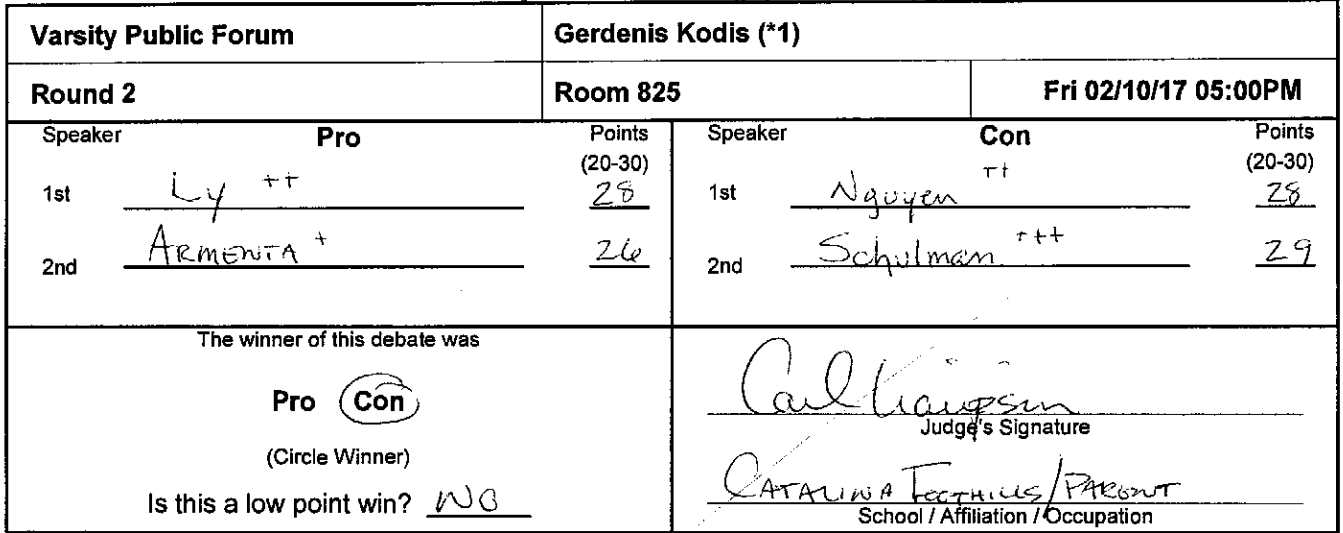 Varsity Public Forum Gerdenis Kodis (*1)
Round 2 Room 825 Fri 02/10/17 05:00PM
Speaker Pro Points
(20-30)
1st Ly ++ 28
2nd ARMENTA + 26
Speaker Con Points
(20-30)
1st Nguyen ++ 28
2nd Schulman +++ 29
The winner of this debate was
Pro Con
(Circle Winner)
Is this a low point win? NO
Carl
Judge's Signature
CATALINA FOOTHILLS/PARENT
School / Affiliation / Occupation